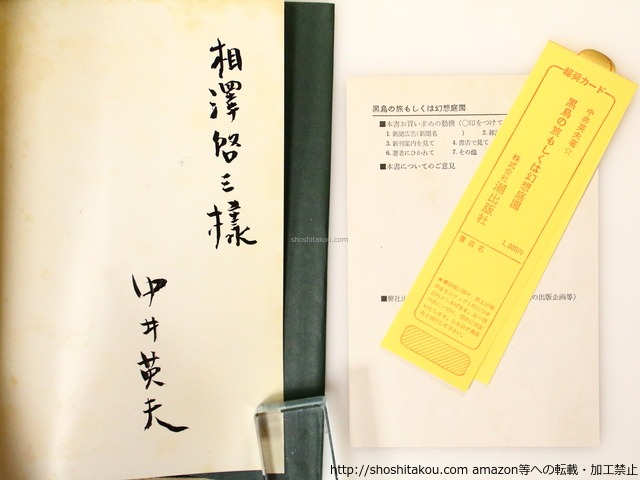 相澤啓三様
中井英夫
黒鳥の旅もしくは幻想庭園
■本書お買い求めの動機(○印をつけて
1.新聞広告(新聞名 ) 2.雑
3.新刊案内を見て 4.書店で見て
6.著者にひかれて 7.その他
■本書についてのご意見
■弊社出
の出版企画等)
報奨カード
中井英夫著☆
黒鳥の旅もしくは幻想庭園
株式会社 潮出版社
1,000円
書店名
shoshitakou.com
http://shoshitakou.com amazon等への転載・加工禁止